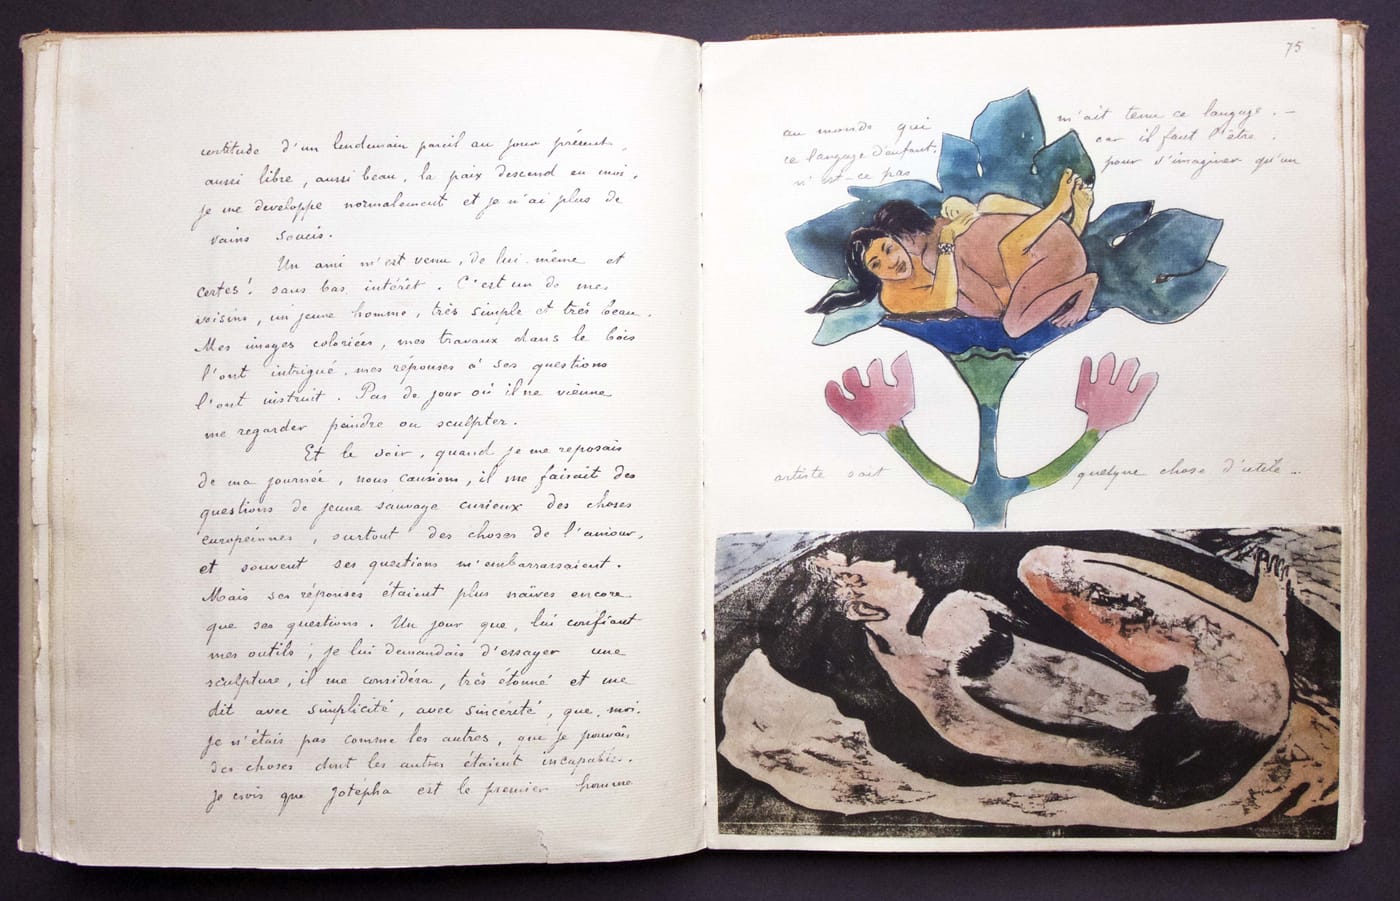 certitude d'un lendemain pareil au jour présent,
aussi libre, aussi beau, la paix descend en moi,
je me développe normalement et je n'ai plus de
vains soucis.
Un ami m'est venu, de lui-même et
certes! sans bas intérêt. C'est un de mes
voisins, un jeune homme, très simple et très beau.
Mes images coloriées, mes travaux dans le bois
l'ont intrigué, mes réponses à ses questions
l'ont instruit. Pas de jour où il ne vienne
me regarder peindre ou sculpter.
Et le soir, quand je me reposais
de ma journée, nous causions, il me faisait des
questions de jeune sauvage curieux des choses
européennes, surtout des choses de l'amour,
et souvent ses questions m'embarrassaient.
Mais ses réponses étaient plus naïves encore
que ses questions. Un jour que, lui confiant
mes outils, je lui demandais d'essayer une
sculpture, il me considéra, très étonné et me
dit avec simplicité, avec sincérité, que, moi,
je n'étais pas comme les autres, que je pouvais
des choses dont les autres étaient incapables.
Je crois que Jotépha est le premier homme
75
au monde qui m'ait tenu ce langage. –
ce langage d'enfant, car il faut l'être,
n'est-ce pas pour s'imaginer qu'un
artiste soit quelque chose d'utile...